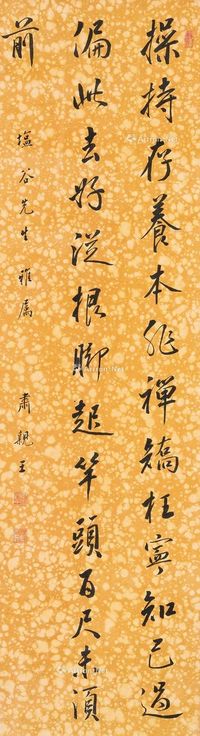 操持存養本非禪矯枉寧知已過
偏此去好從根腳起竿頭百尺未須
前
塩谷先生雅属 肅親王